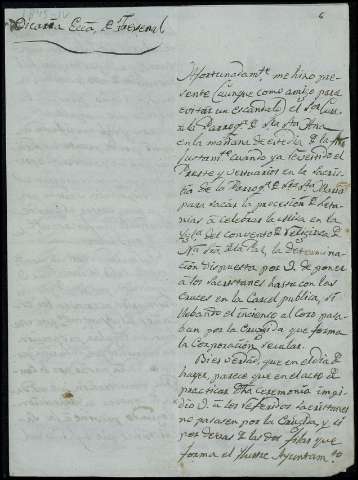 6
Vicaría Ecca, de Fregenal
Afortunadamte. me hizo pre-
sente (aunque como amigo para
evitar un escándalo) el Sor. Cura
de la Parroqa. de Sta. Ana
en la mañana de este día de la fha
justamte. cuando ya revestido el
Preste y vestuarios en la sacris-
tía de la Parroqa. de Sta. María
para sacar la procesión de Leta-
nías a celebrar la Misa en la
Yga. del convento de religiosas de
Na. Sra. de la Paz, la determi-
nación dispuesta por V. de poner
a los sacristanes hasta con las
cruces en la Carcel publica, si
llebando el incienso al Coro pasa-
ban por la Crugida que forma
la Corporación secular.
Bien es verdad, que en el día de
hayer, parece que en el acto de
practicar dha ceremonia impi-
dió V. a los referidos sacristanes
no pasasen por la Crugida, y sí
por detras de las dos filas que
forma el Ilustre Ayuntamto.